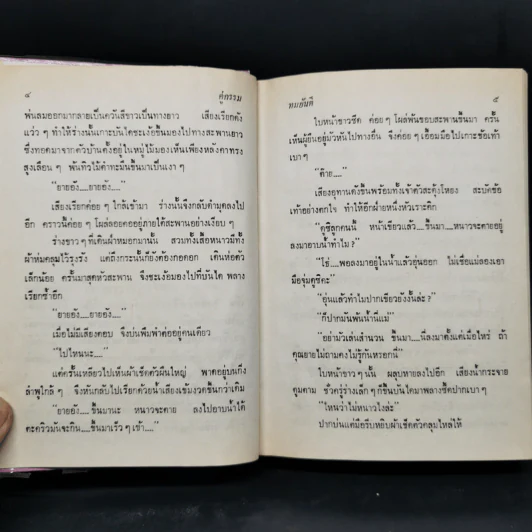 ๔
คู่กรรม
พ่นลมออกมากลายเป็นควันสีขาวเป็นทางยาว เสียงเรียกดัง
แว่ว ๆ ทำให้ร่างนั้นเกาะบันไดชะเง้อขึ้นมองไปทางสะพานยาว
ซึ่งทอดมาจากตัวบ้านตั้งอยู่ในหมู่ไม้มองเห็นเพียงหลังคาทรง
สูงเลือน ๆ พ้นทิวไม้ดำทะมึนขึ้นมาเป็นเงา ๆ
"ยายอัง....ยายอัง...."
เสียงเรียกค่อย ๆ ใกล้เข้ามา ร่างนั้นจึงกลับดำมุดลงไป
อีก คราวนี้ค่อย ๆ โผล่ลอยคออยู่ภายใต้สะพานอย่างเงียบ ๆ
ร่างขาว ๆ ที่เดินฝ่าหมอกมานั้น สวมทั้งเสื้อหนาวมีทั้ง
ผ้าห่มคลุมไว้รุงรัง แต่ถึงกระนั้นก็ยังคงงอคอก เดินห่อตัว
เล็กน้อย ครั้นมาสุดหัวสะพาน จึงชะเง้อมองไปที่บันได พลาง
เรียกซ้ำอีก
"ยายอัง....ยายอัง...."
เมื่อไม่มีเสียงตอบ จึงบ่นพึมพำต่ออยู่คนเดียว
"ไปไหนนะ...."
แต่ครั้นเหลียวไปเห็นผ้าเช็ดตัวผืนใหญ่ พาดอยู่บนกิ่ง
ลำพูใกล้ ๆ จึงหันกลับไปเรียกด้วยน้ำเสียงเข้มงวดขึ้นกว่าเดิม
"ยายอัง....ขึ้นมานะ หนาวจะตาย ลงไปอาบน้ำได้
ตะคริวมันจะกิน....ขึ้นมาเร็ว ๆ เข้า...."
ทมยันตี
๕
ใบหน้าขาวซีด ค่อย ๆ โผล่พ้นขอบสะพานขึ้นมา ครั้น
เห็นผู้ยืนอยู่มัวหันไปทางอื่น จึงค่อย ๆ เอื้อมมือไปเกาะข้อเท้า
เบา ๆ
"ต๊าย...."
เสียงอุทานดังขึ้นพร้อมทั้งเจ้าตัวสะดุ้งโหยง สะบัดข้อ
เท้าอย่างตกใจ ทำให้อีกฝ่ายหนึ่งหัวเราะคิก
"ดูซิลูกคนนี้ หน้าเขียวแล้ว....ขึ้นมา....หนาวจะตายอยู่
ลงมาอาบน้ำทำไม ?"
"โธ่....พอลงมาอยู่ในน้ำแล้วอุ่นออก ไม่เชื่อแม่ลองเอา
มือจุ่มดูซิคะ"
"อุ่นแล้วทำไมปากเขียวยังงั้นล่ะ ?"
"ก็ปากมันพ้นน้ำนี่แม่"
"อย่ามัวเล่นสำนวน ขึ้นมา....นี่ลงมาตั้งแต่เมื่อไหร่ ถ้า
คุณยายไม่ถามคงไม่รู้กันหรอกนี่"
ใบหน้าขาว ๆ นั้น ผลุบหายลงไปอีก เสียงน้ำกระจาย
ตูมตาม ชั่วครู่ร่างเล็ก ๆ ก็ขึ้นบันไดมาพลางซี้ดปากเบา ๆ
"ไหนว่าไม่หนาวไงล่ะ"
ปากบ่นแต่มือรีบหยิบผ้าเช็ดตัวคลุมไหล่ให้